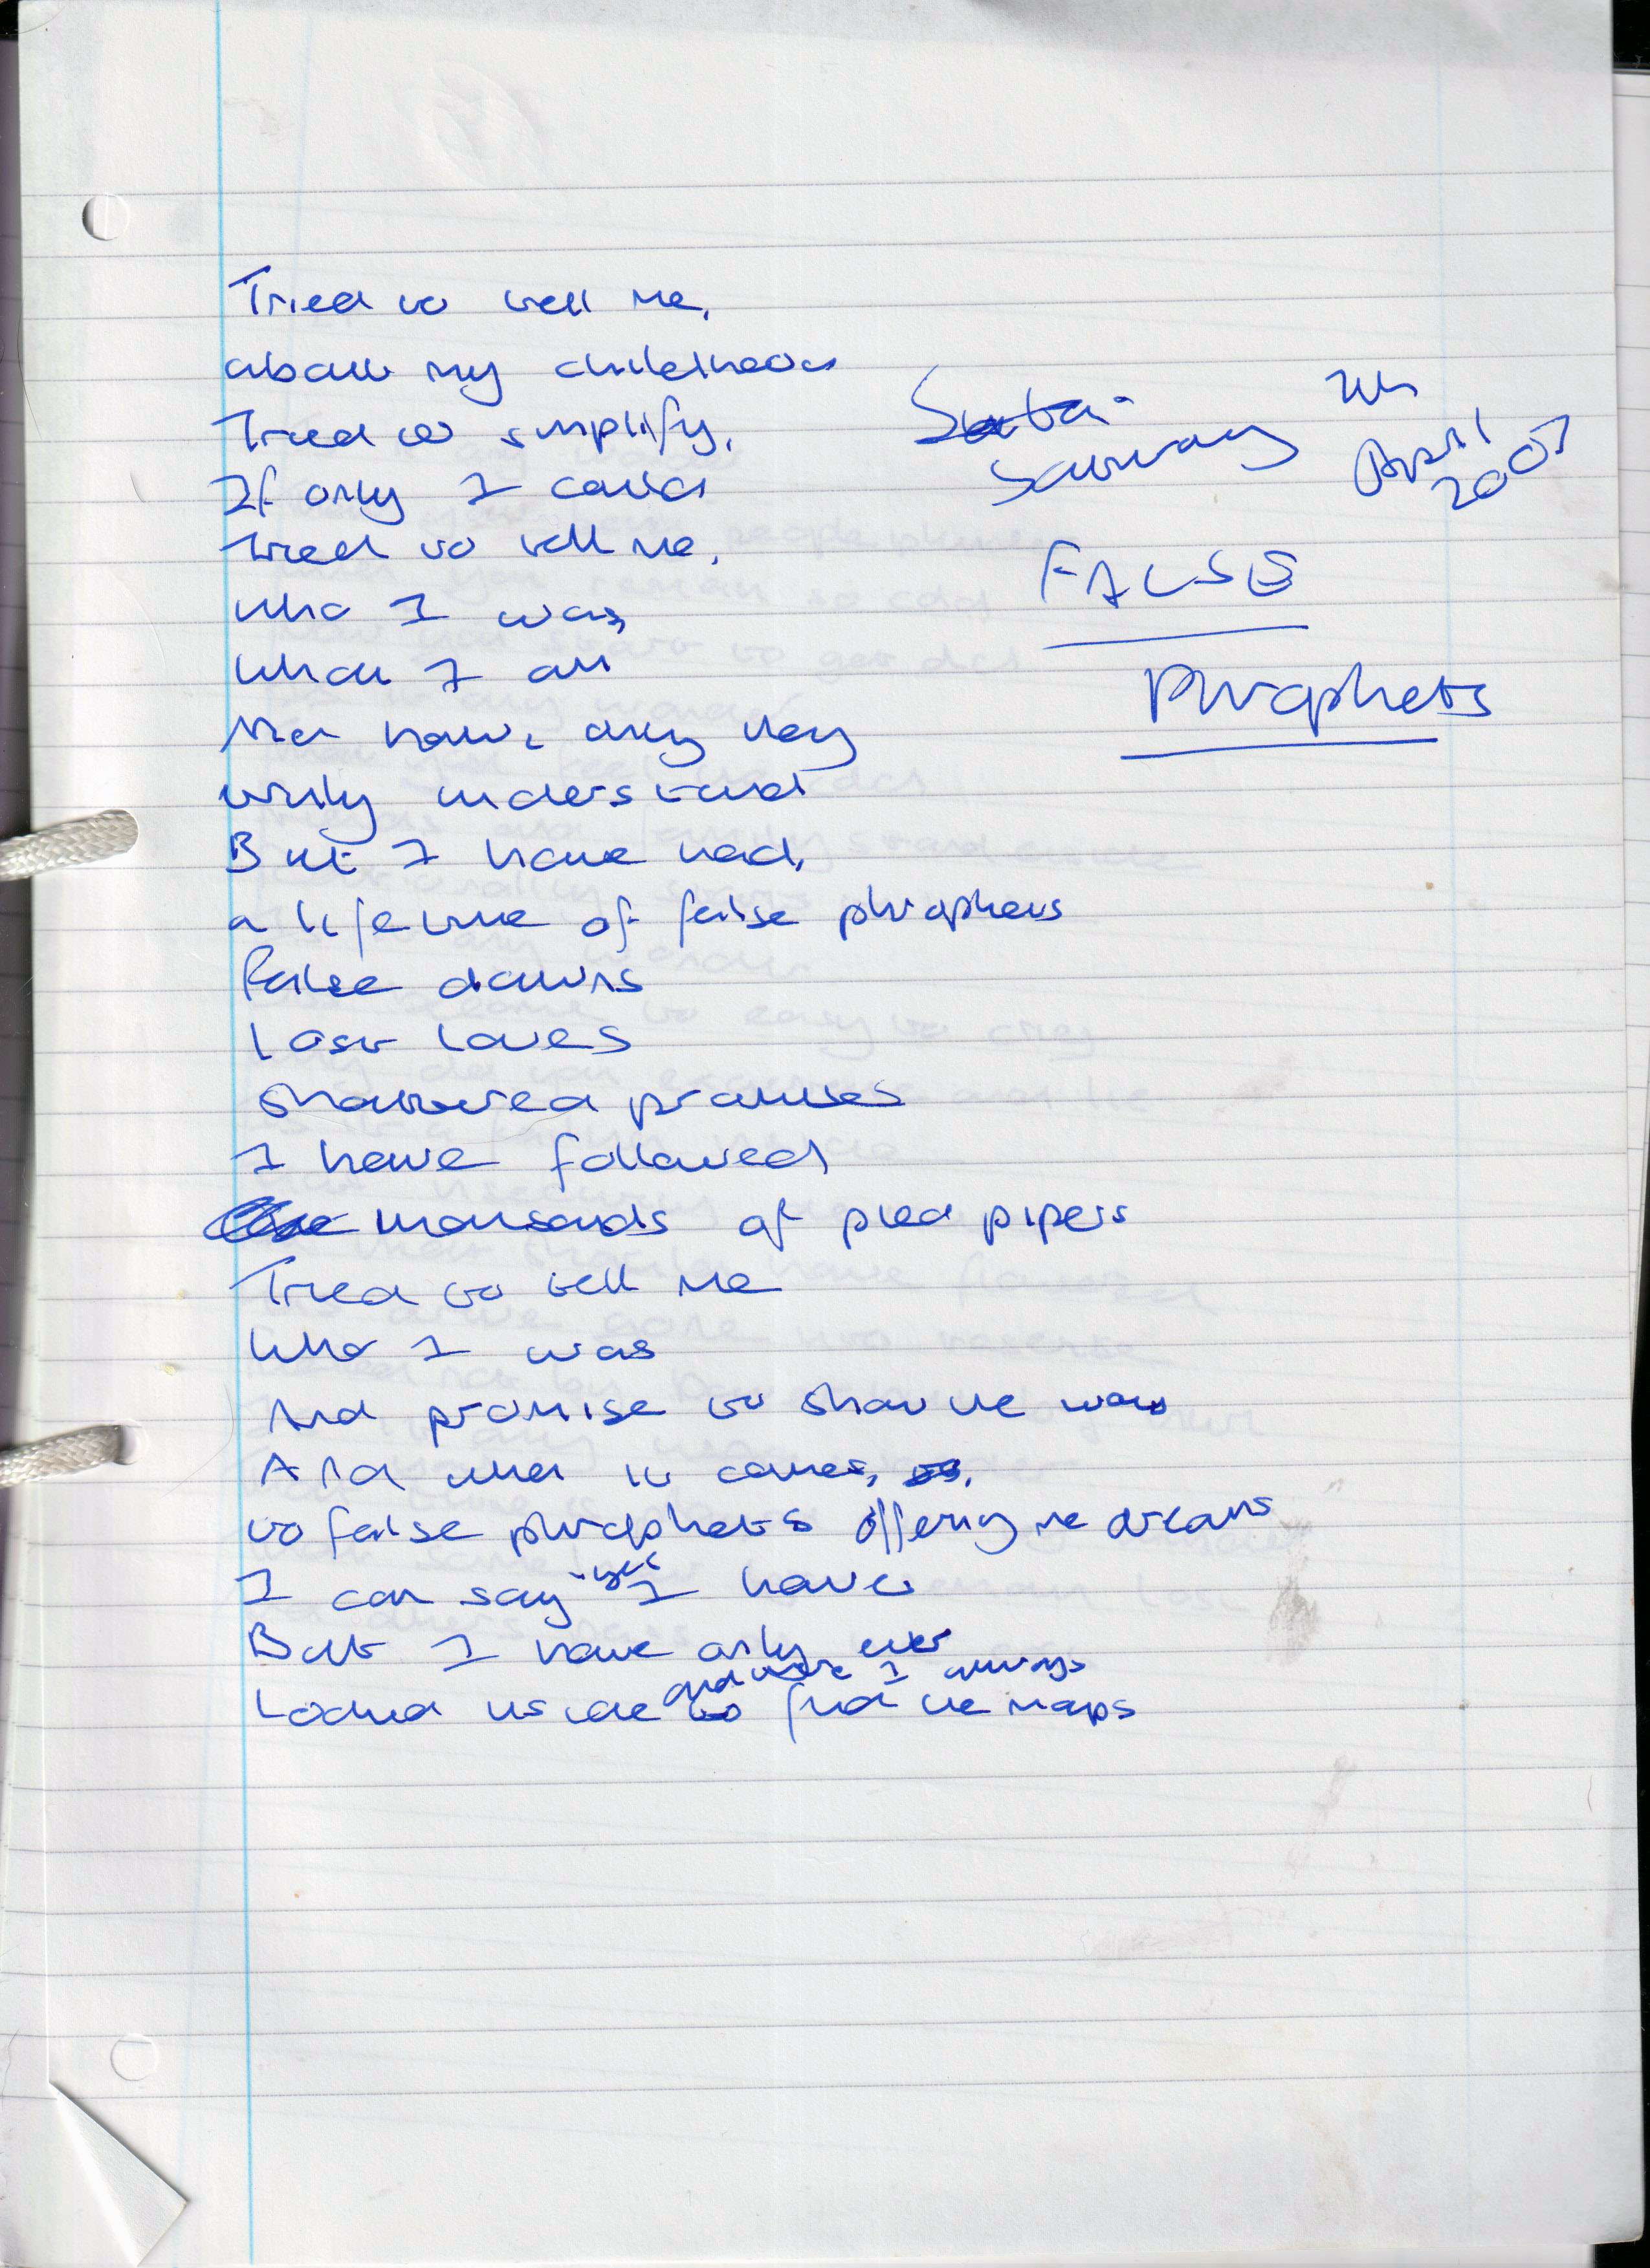 Tried to tell me,
about my childhood
Tried to simplify,
If only I could
Tried to tell me,
who I was,
what I am
Not how, only they
truly understand
But I have had,
a lifetime of false phrophets
false dawns
Lost Loves
Shattered promises
I have followed
thousands of pied pipers
Tried to tell me
who I was
And promise to show the way
And when it comes,
to false phrophets offering me dreams
I can say yes I have
But I have only ever
and where I always
Looked inside to find the maps
Saturday
April
2007
FALSE
Phrophets